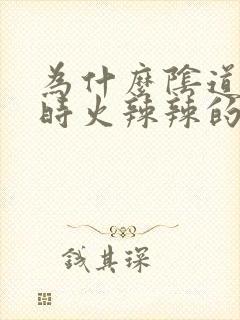 為什麼陰道
時火辣辣的
錢其琛